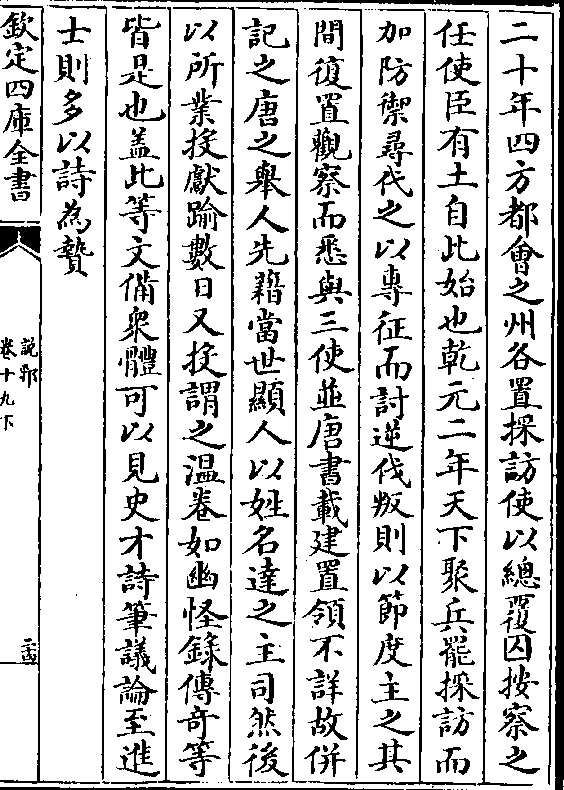 二十年四方都會之州各置採訪使以總覆囚按察之
任使臣有土自此始也乾元二年天下聚兵罷採訪而
加防禦尋代之以專征而討逆伐叛則以節度主之其
間復置觀察而悉與三使並唐書載建置領不詳故併
記之唐之舉人先藉當世顯人以姓名達之主司然後
以所業投獻踰數日又投謂之温卷如幽怪錄傳奇等
皆是也盖此等文備衆體可以見史才詩筆議論至進
士則多以詩為贄
欽定四庫全書
說郛
卷十九下